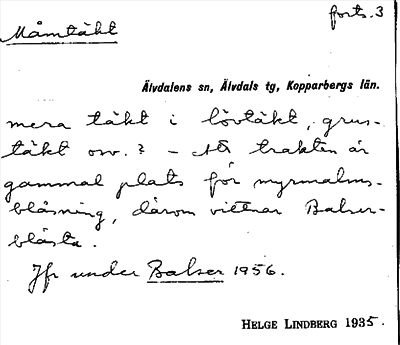 Måmtäkt
forts. 3
Älvdalens sn, Älvdals tg, Kopparbergs län.
mera täkt i lövtäkt, grus-
täkt osv.? – Att trakten är
gammal plats för myrmalms-
blåsning, därom vittnar Balser-
blästa.
Jfr under Balser 1956.
HELGE LINDBERG 1935.